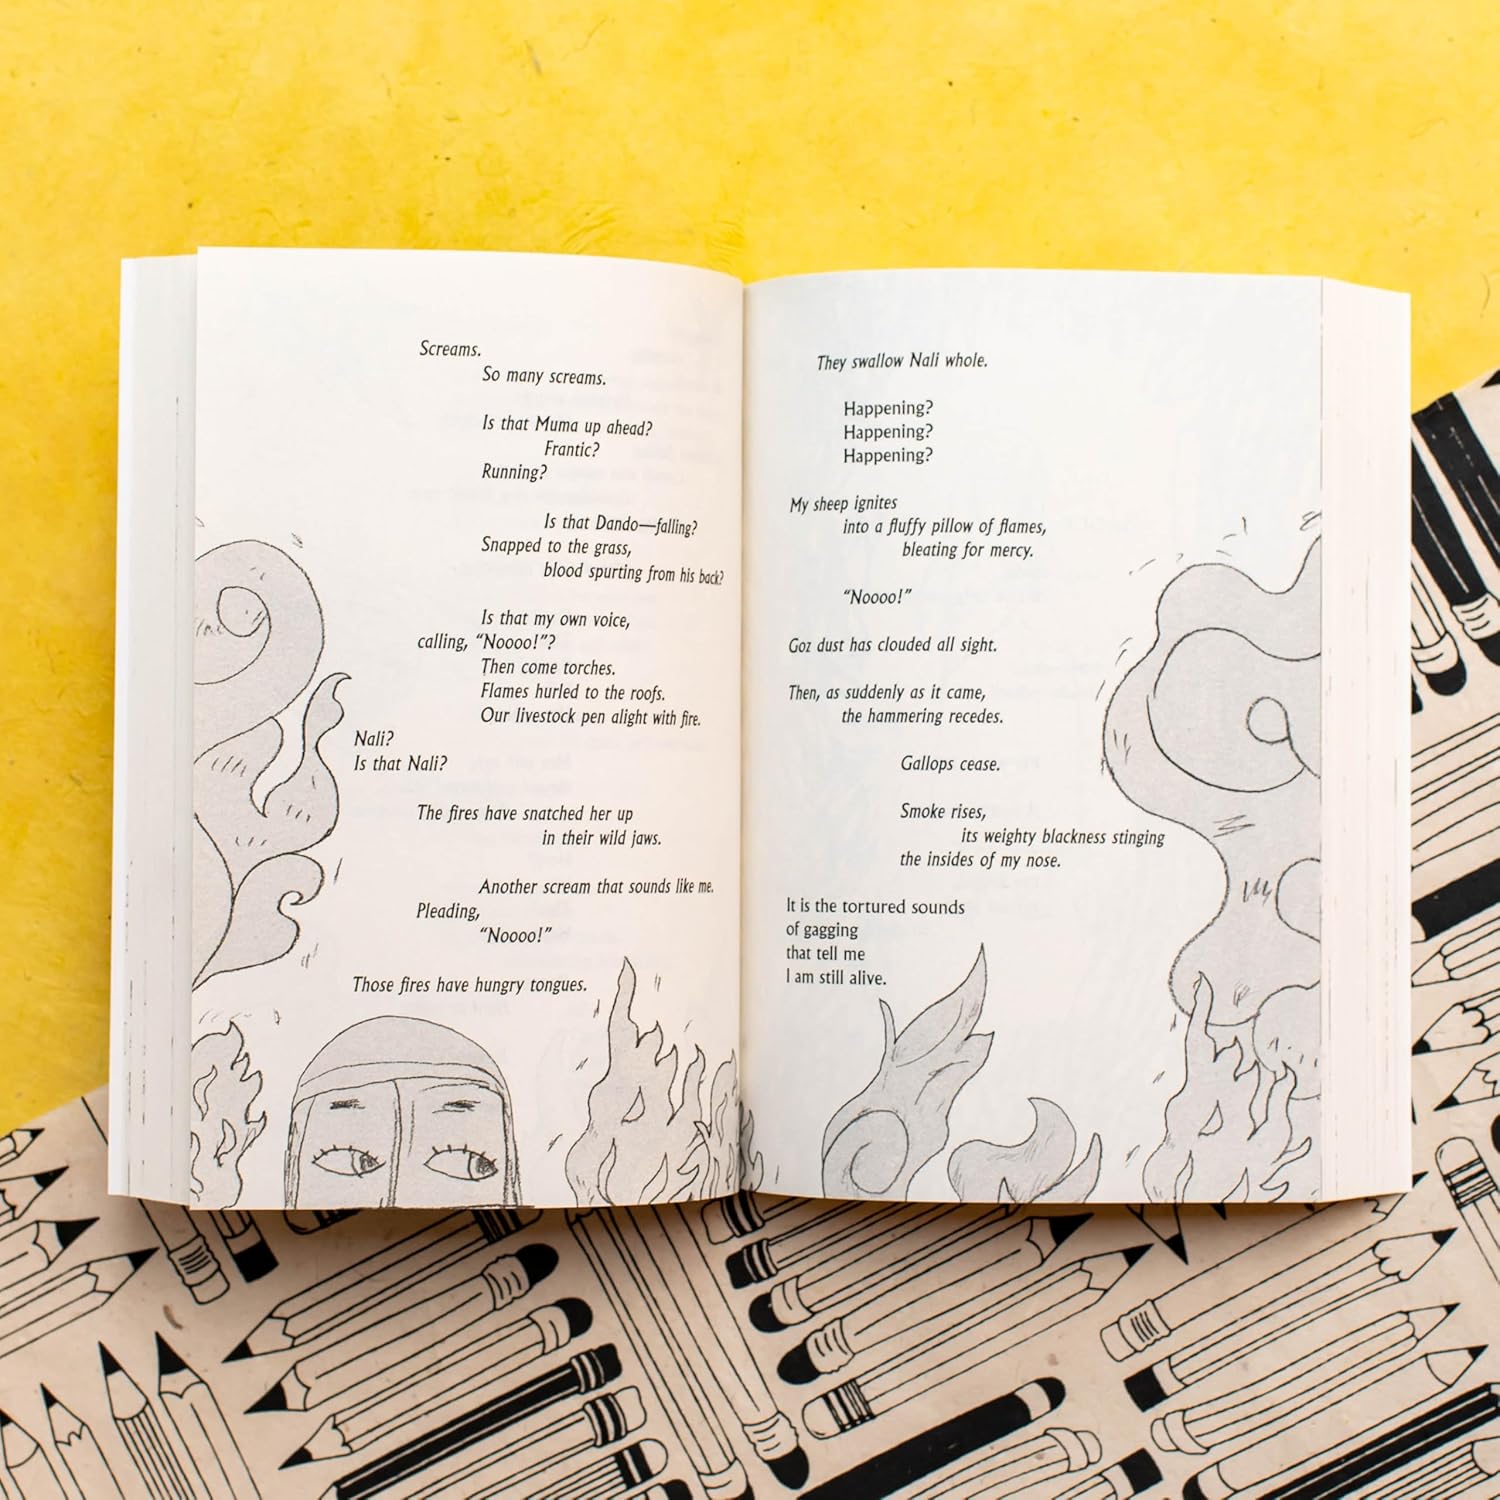 Screams.
So many screams.
Is that Muma up ahead?
Frantic?
Running?
Is that Dando—falling?
Snapped to the grass,
blood spurting from his back?
Is that my own voice,
calling, “Noooo!”?
Then come torches.
Flames hurled to the roofs.
Our livestock pen alight with fire.
Nali?
Is that Nali?
The fires have snatched her up
in their wild jaws.
Another scream that sounds like me.
Pleading,
“Noooo!”
Those fires have hungry tongues.
They swallow Nali whole.
Happening?
Happening?
Happening?
My sheep ignites
into a fluffy pillow of flames,
bleating for mercy.
“Noooo!”
Goz dust has clouded all sight.
Then, as suddenly as it came,
the hammering recedes.
Gallops cease.
Smoke rises,
its weighty blackness stinging
the insides of my nose.
It is the tortured sounds
of gagging
that tell me
I am still alive.